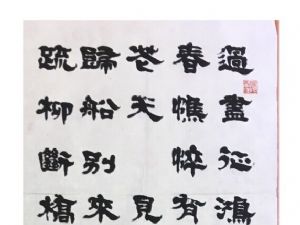 過盡征鴻
春憔悴有
花天見
歸船別來
疏柳斷橋